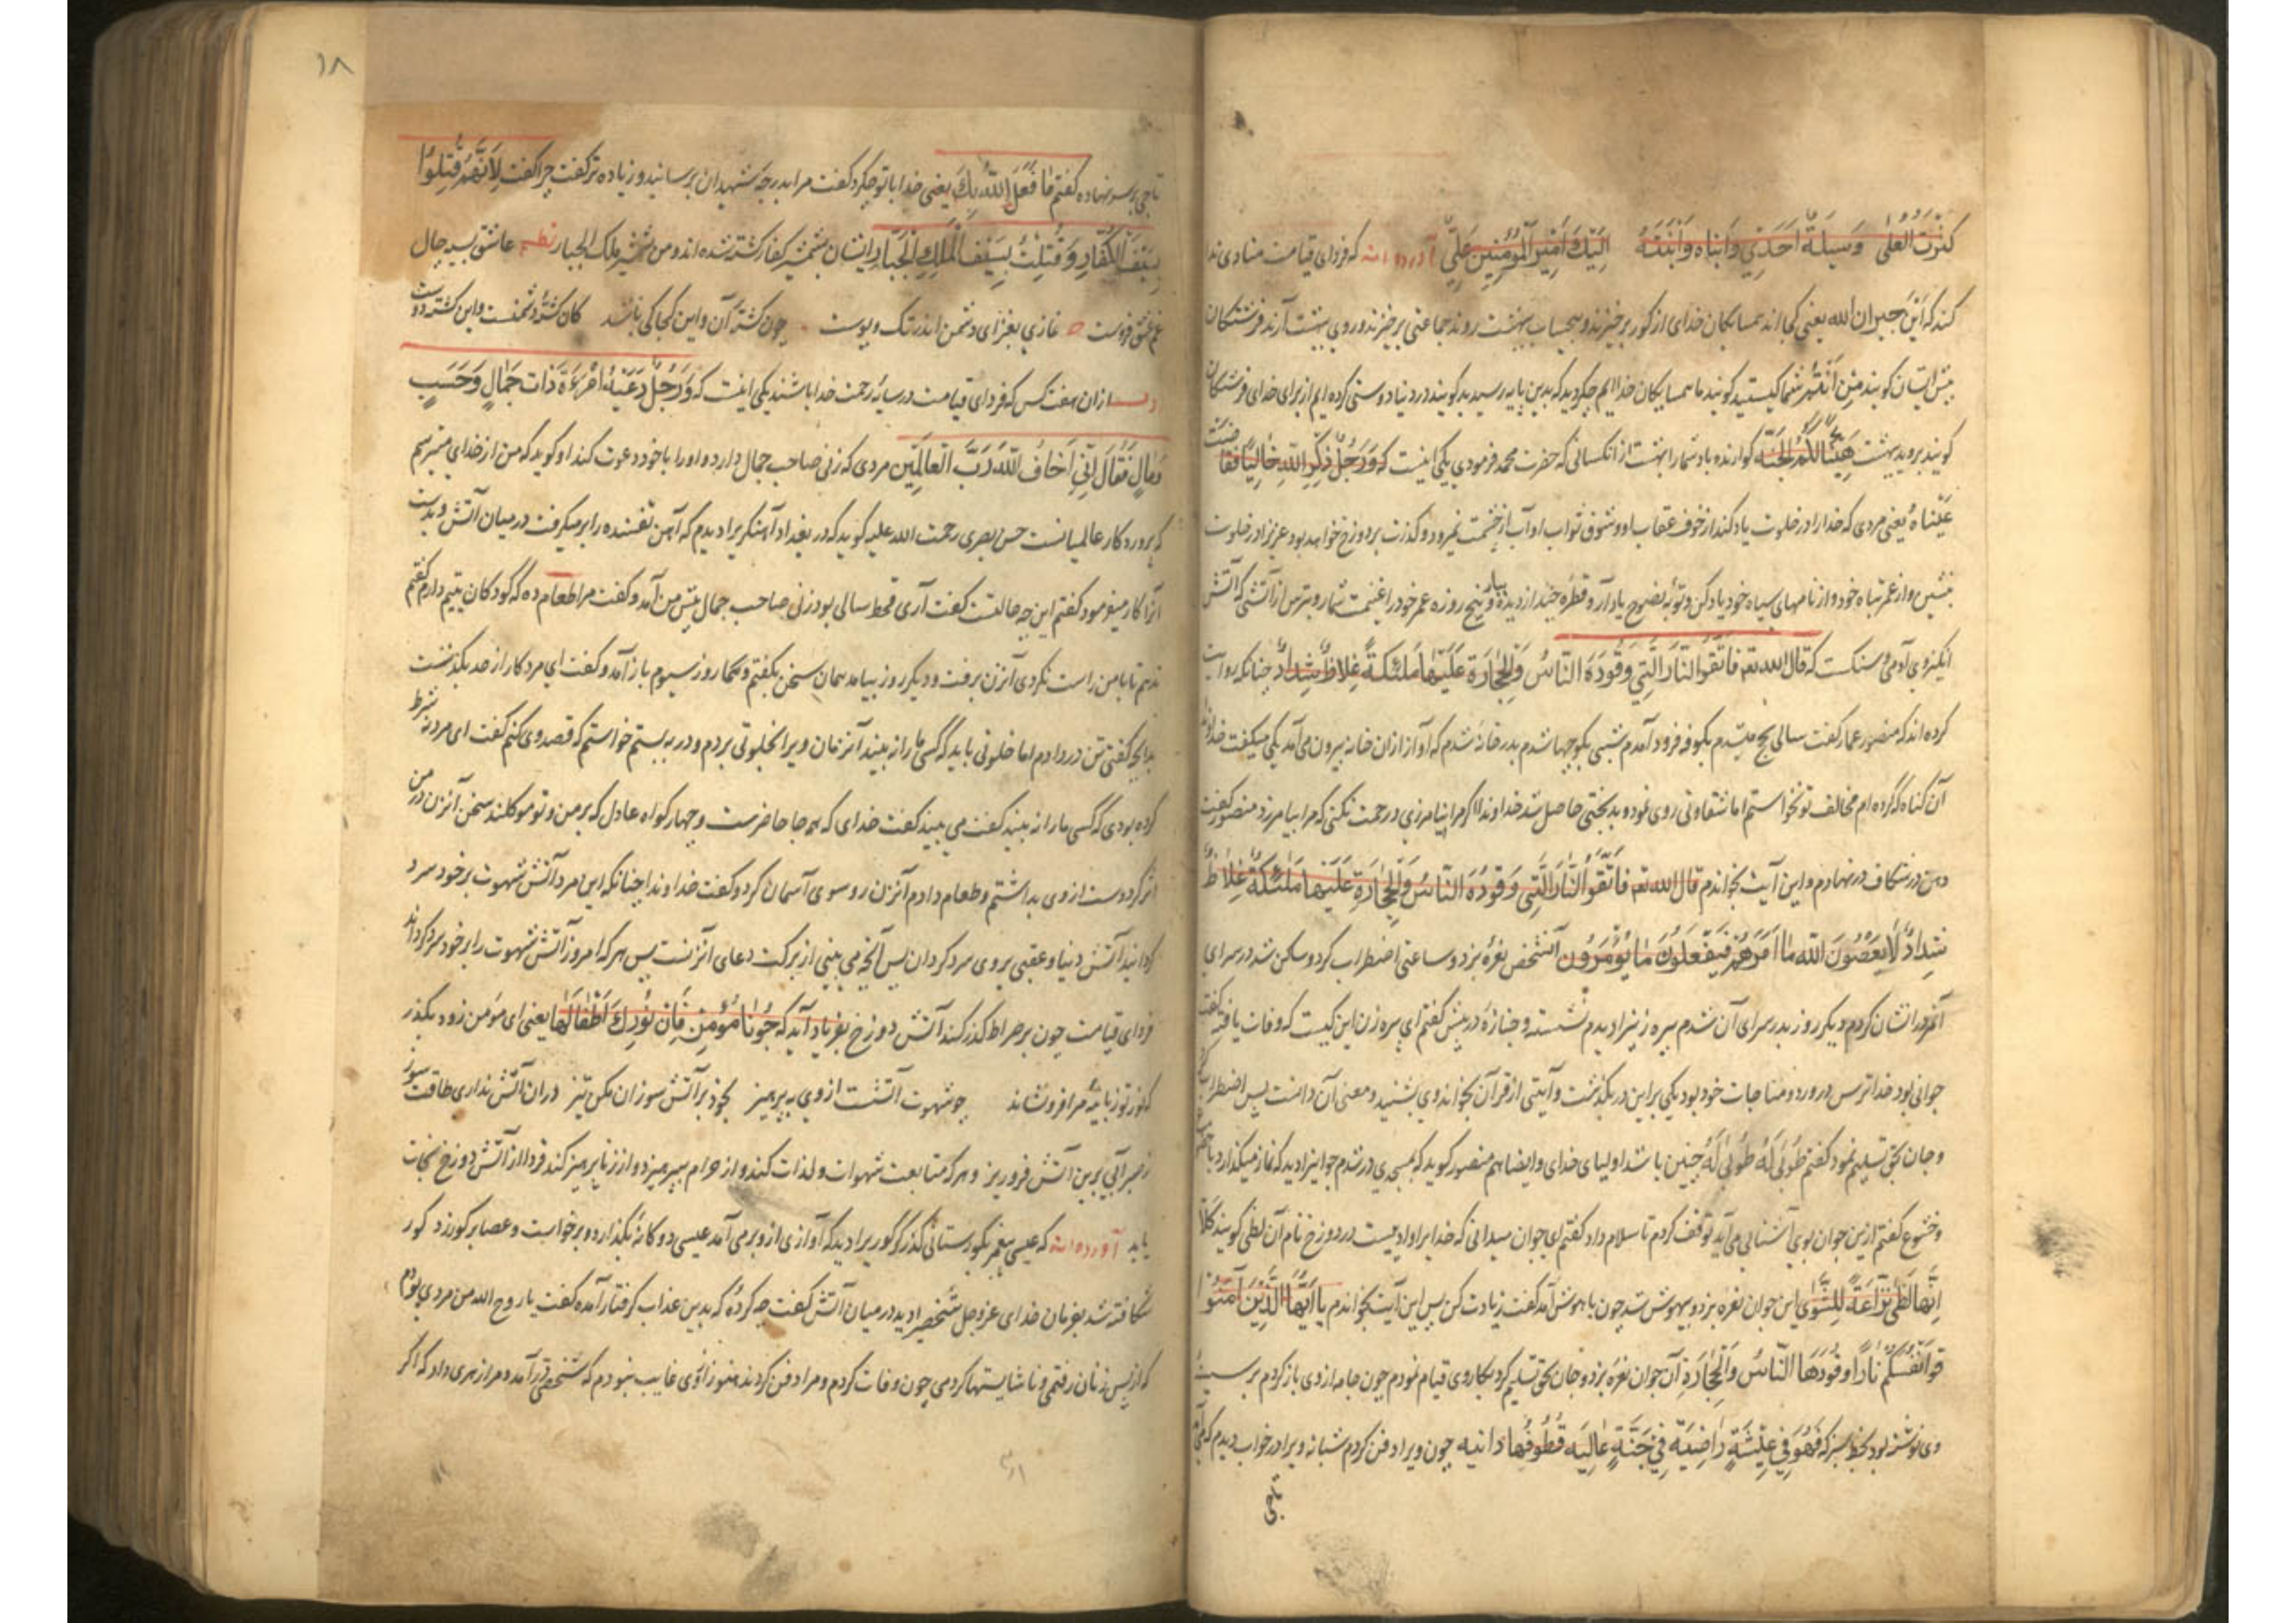 كنز العلى وسيلة احمدي وابناه وابنته اليك امير المؤمنين علي آورده اند که فردای قیامت منادی ند
کند که این جیران الله یعنی کجا اند همسایکان خدای از کور برخیزند و بیحساب ببهشت روند جماعتی برخیزند و روی ببهشت آرند فرشتکان
پیش ایشان کویند من انتم شما کیستید کویند ما همسایکان خداایم چکردید که بدین پایه رسیدید کویند در دنیا دوستی کرده ایم از برای خدای فرشتکان
کویند بروید ببهشت هنيئا لكم الجنة کوارنده باد شما را بهشت از انکسانی که حضرت محمد فرمودی یکی اینست که ورجل ذكر الله خاليا ففاضت
عيناه یعنی مردی که خدا را در خلوت یاد کند از خوف عقاب او و شوق ثواب او آب از چشمت نمیرود و کذرت بر دوزخ خواهد بود عزیزا در خلوت
بنشین و از عمر تباه خود و از نامهای سیاه خود یاد کن و توبه نصوح یاد آر و قطره چند از دیده ببار و پنج روزه عمر خود را غنیمت شمار و بترس از آتشی که آتش
انکیزوی آدمی و سنکست که قال الله تعالى فاتقوا النار التي وقودها الناس والحجارة عليها ملئكة غلاظ شداد چنانکه روایت
کرده اند که منصور عمار کفت سالی بحج میشدم بکوفه فرود آمدم شبی بکوچها شدم بدر خانه شدم که آواز ازان خانه بیرون می آمد یکی میکفت خداوندا
آن کناه که کرده ام مخالفت تو نخواستم اما شقاوتی روی نمود و بدبختی حاصل شد خداوندا اکر مرا نیامرزی و رحمت نکنی که مرا بیامرزد منصور کفت
دهن در شکاف در نهادم و این آیت بخواندم قال الله تعالى فاتقوا النار التي وقودها الناس والحجارة عليها ملئكة غلاظ
شداد لا يعصون الله ما امرهم و يفعلون ما يؤمرون آنشخص نعره بزد و ساعتی اضطراب کرد و ساکن شد در سرای
آنمرد را نشان کردم دیکر روز بدر سرای آن شدم پیره زنیرا دیدم نشسته و جنازه در پیش کفتم ای پیره زن این کیست که وفات یافته کفت
جوانی بود خداترس در ورد و مناجات خود بود یکی براین در بکذشت و آیتی از قرآن بخواند وی بشنید و معنی آن دانست پس اضطراب کرد
و جان بحق تسلیم نمود کفتم طوبی له طوبی له چنین باشد اولیای خدای و ایضا هم منصور کوید که بمسجدی در شدم جوانیرا دیدم که نماز میکذارد با خضوع
و خشوع کفتم ازین جوان بوی آشنایی می آید توقف کردم تا سلام داد کفتم ای جوان میدانی که خدایرا وادییست در دوزخ نام آن لظی کویند كلا
انها لظى نزاعة للشوى این جوان نعره بزد و بیهوش شد چون باهوش آمد کفت زیادت کن پس این آیت بخواندم يا ايها الذين آمنوا
قوا انفسكم نارا وقودها الناس والحجارة آن جوان نعره بزد و جان بحق تسلیم کرد بکار وی قیام نمودم چون جامه از وی باز کردم بر سینه
وی نوشته بود بخط سبز که فهو في عيشة راضية في جنة عالية قطوفها دانية چون ویرا دفن کردم شبانه ویرا در خواب دیدم که می آمد
تاجی
۱۸
تاجی بر سر نهاده کفتم ما فعل الله بك یعنی خدا با تو چکرد کفت مرا بدرجه شهیدان برسانید و زیاده تر کفت چرا کفت لانهم قتلوا
بسيف الكفار وقتلت بسيف الملك الجبار ایشان بشمشیر کفار کشته شده اند و من بشمشیر ملک الجبار نظم عاشق بسیه چال
غم عشق فروست غازی بغزای دشمن اندر تک و پوست چون کشته آن و این کجا کی باشد کان کشته دشمنست و این کشته دوست
ازان هفت کس که فردای قیامت در سایه رحمت خدا باشند یکی اینست که ورجل دعته امرءة ذات جمال وحسب
ومال فقال اني اخاف الله رب العالمين مردی که زنی صاحب جمال دارد و او را با خود دعوت کند او کوید که من از خدای میترسم
که پروردکار عالمیانست حسن بصری رحمت الله علیه کوید که در بغداد آهنکریرا دیدم که آهن تفسنده را بر میکرفت در میان آتش و بدست
آنرا کار میفرمود کفتم این چه حالتست کفت آری قحط سالی بود زنی صاحب جمال پیش من آمد و کفت مرا طعام ده که کودکان یتیم دارم کفتم
ندهم تا با من راست نکردی آنزن برفت و دیکر روز بیامد همان سخن بکفتم و همکار روز سیوم باز آمد و کفت ای مرد کار از حد بکذشت
بدانچه کفتی تن در دادم اما خلوتی باید که کسی ما را نه بیند آنزمان ویرا بخلوتی بردم و در به بستم خواستم که قصد وی کنم کفت ای مرد نه شرط
کرده بودی که کسی ما را نه بیند کفت می بیند کفت خدای که همه جا حاضرست و چهار کواه عادل که بر من و تو موکلند سخن آنزن در من
اثر کرد دست از وی بداشتم و طعام دادم آنزن رو سوی آسمان کرد و کفت خداوندا چنانکه این مرد آتش شهوت بر خود سرد
کردانید آتش دنیا و عقبی بروی سرد کردان پس آنچه می بینی از برکت دعای آنزنست پس هر که امروز آتش شهوت را بر خود سرد کرداند
فردای قیامت چون بر صراط کذر کند آتش دوزخ بفریاد آید که جزنا مؤمن فان نورك اطفالها یعنی ای مؤمن زود بکذر
که نور تو زبانیه مرا فرو نشاند چو شهوت آتشست از وی بپرهیز بخود بر آتش سوزان مکن تیز دران آتش نداری طاقت سوز
زصبر آبی برین آتش فروریز و هرکه متابعت شهوات و لذات نکند و از حرام بپرهیزد و از زنا پرهیز کند فردا از آتش دوزخ نجات
یابد آورده اند که عیسی پیغمبر بکورستانی کذر کرد کوریرا دید که آوازی ازو بر می آمد عیسی دوکانه بکذارد و برخواست و عصا بر کور زد کور
شکافته شد بفرمان خدای عز و جل شخصیرا دید در میان آتش کفت چه کرده که بدین عذاب کرفتار آمده کفت یا روح الله من مردی بودم
که از پس زنان رفتمی و ناشایستها کردمی چون وفات کردم و مرا دفن کردند هنوز از وی غایب نبودم که شخصی در آمد و مرا زهری داد که اکر